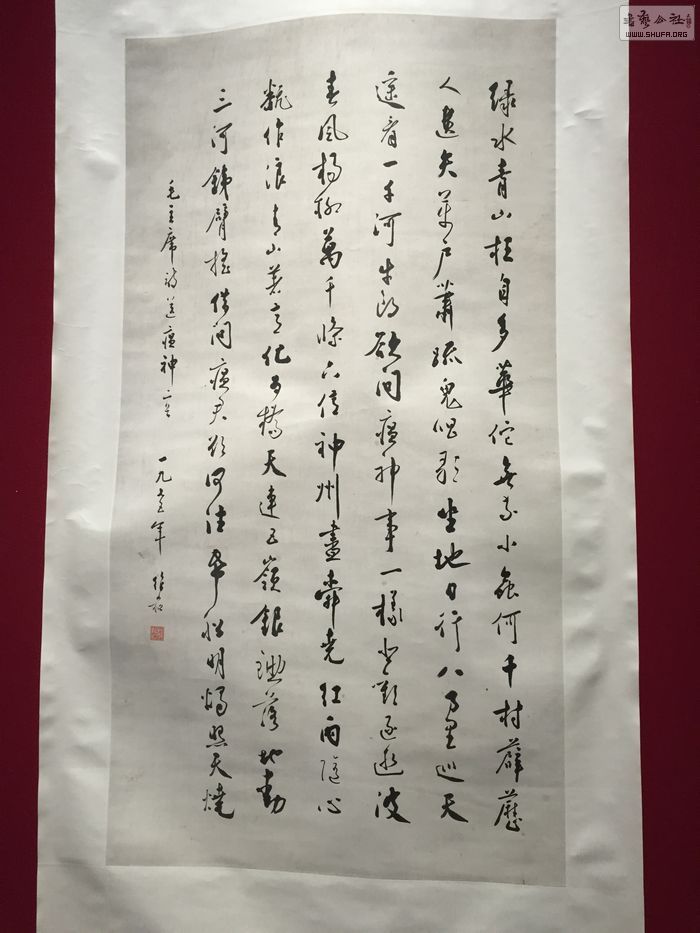 綠水青山枉自多華佗無奈小蟲何千村薜藶
人遺矢萬戶蕭疏鬼唱歌坐地日行八萬里巡天
遙看一千河牛郎欲問瘟神事一樣悲歡逐逝波
春風楊柳萬千條六億神州盡舜堯紅雨隨心
翻作浪青山著意化為橋天連五嶺銀鋤落地動
三河鐵臂搖借問瘟君欲何往帋船明燭照天燒
毛主席詩送瘟神二首 一九五年
書藝公社
WWW.SHUFA.ORG